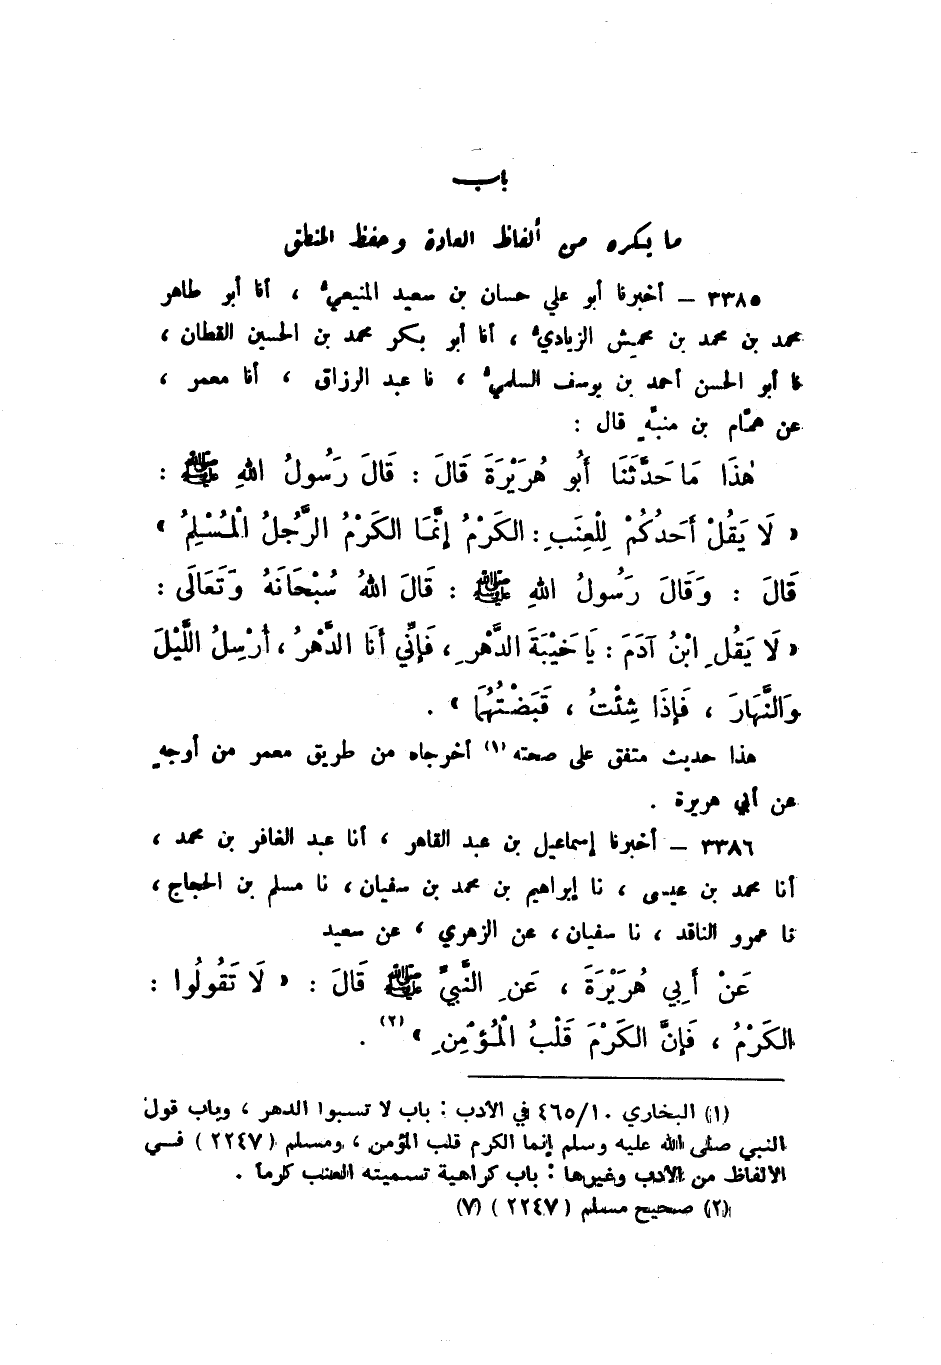 باب
ما يكره من ألفاظ العادة وحفظ المنطق
٣٣٨٥ – أخبرنا أبو علي حسان بن سعيد المنيعيُّ ، أنا أبو طاهر
محمد بن محمد بن محمِش الزياديُّ ، أنا أبو بكر محمد بن الحسين القطان ،
نا أبو الحسن أحمد بن يوسف السلميُّ ، نا عبد الرزاق ، أنا معمر ،
عن همَّام بن منبِّهٍ قال :
هٰذَا مَا حَدَّثَنَا أَبُو هُرَيْرَةَ قَالَ : قَالَ رَسُولُ اللهِ ﷺ :
« لَا يَقُلْ أَحَدُكُمْ لِلْعِنَبِ : الكَرْمُ إِنَّمَا الكَرْمُ الرَّجُلُ الْمُسْلِمُ »
قَالَ : وَقَالَ رَسُولُ اللهِ ﷺ : قَالَ اللهُ سُبْحَانَهُ وَتَعَالَى :
« لَا يَقُلِ ابْنُ آدَمَ : يَا خَيْبَةَ الدَّهْرِ ، فَإِنِّي أَنَا الدَّهْرُ ، أُرْسِلُ اللَّيْلَ
وَالنَّهَارَ ، فَإِذَا شِئْتُ ، قَبَضْتُهُمَا » .
هذا حديث متفق على صحته (١) أخرجاه من طريق معمر من أوجهٍ
عن أبي هريرة .
٣٣٨٦ – أخبرنا إسماعيل بن عبد القاهر ، أنا عبد الغافر بن محمد ،
أنا محمد بن عيسى ، نا إبراهيم بن محمد بن سفيان ، نا مسلم بن الحجاج ،
نا عمرو الناقد ، نا سفيان ، عن الزهري ، عن سعيد
عَنْ أَبِي هُرَيْرَةَ ، عَنِ النَّبِيِّ ﷺ قَالَ : « لَا تَقُولُوا :
الكَرْمُ ، فَإِنَّ الكَرْمَ قَلْبُ الْمُؤْمِنِ » (٢) .
(١) البخاري ٤٦٥/١٠ في الأدب : باب لا تسبوا الدهر ، وباب قول
النبي صلى الله عليه وسلم إنما الكرم قلب المؤمن ، ومسلم ( ٢٢٤٧ ) في
الألفاظ من الأدب وغيرها : باب كراهية تسميته العنب كرماً .
(٢) صحيح مسلم ( ٢٢٤٧ ) (٧)